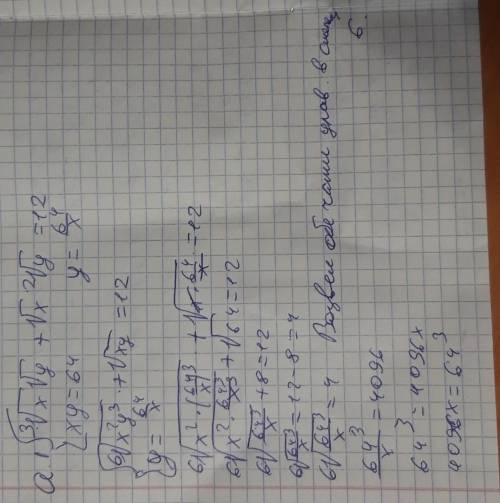 a.1 { ³√x √y + √x ²√y = 12
{ xy = 64 y = 64/x
{ ⁶√x²y³ + √xy = 12
{ y = 64/x
⁶√x² · (64/x)³ + √x · 64/x = 12
⁶√x² · 64³/x³ + √64 = 12
⁶√64³/x + 8 = 12
⁶√64³/x = 12 - 8 = 4
⁶√64³/x = 4 Возвели обе части урав. в степ. 6.
64³/x = 4096
64³ = 4096x
4096x = 64³